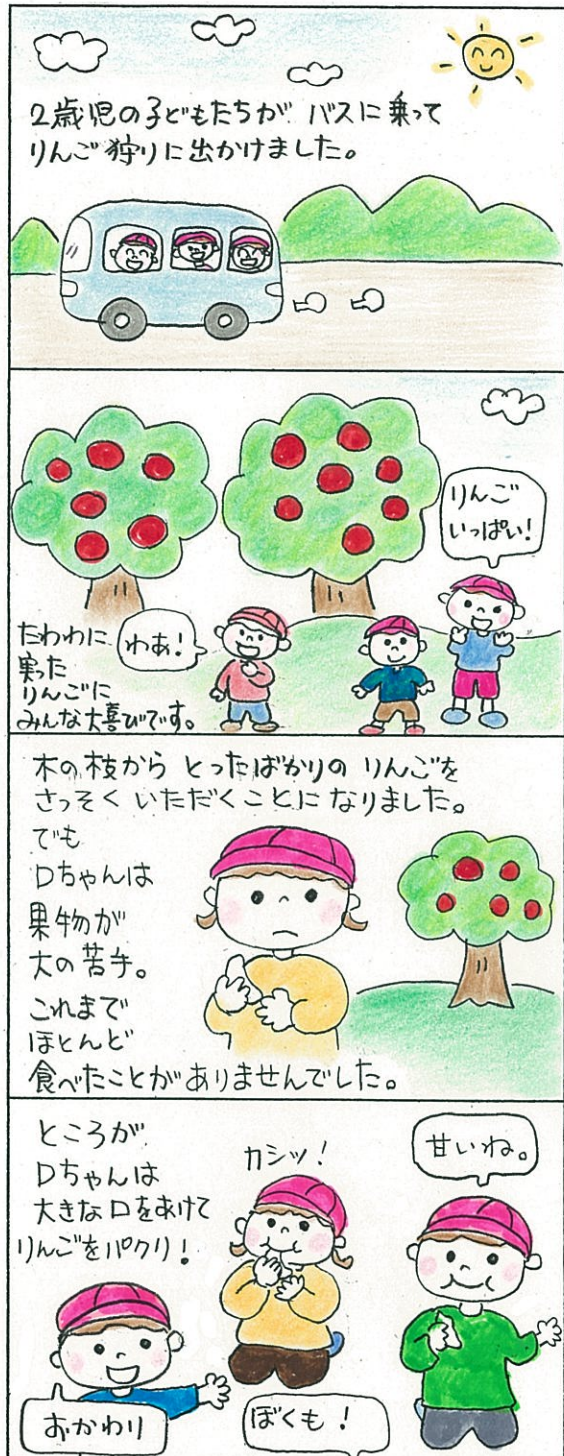 2歳児の子どもたちが バスに乗って
りんご狩りに出かけました。
りんご
いっぱい!
わあ!
たわわに
実った
りんごに
みんな大喜びです。
木の枝から とったばかりの りんごを
さっそく いただくことに なりました。
でも
Dちゃんは
果物が
大の苦手。
これまで
ほとんど
食べたことがありませんでした。
ところが
Dちゃんは
大きな口をあけて
りんごをパクリ!
カシッ!
甘いね。
おかわり
ぼくも!